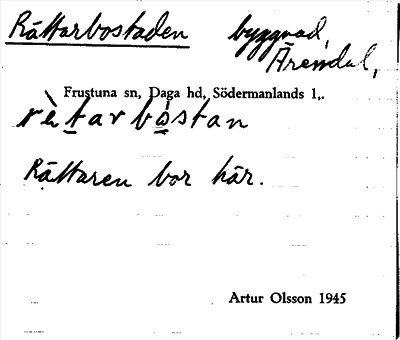 Rättarbostaden byggnad,
Ärendal,
Frustuna sn, Daga hd, Södermanlands l,.
rètarbòstan
Rättaren bor här.
Artur Olsson 1945